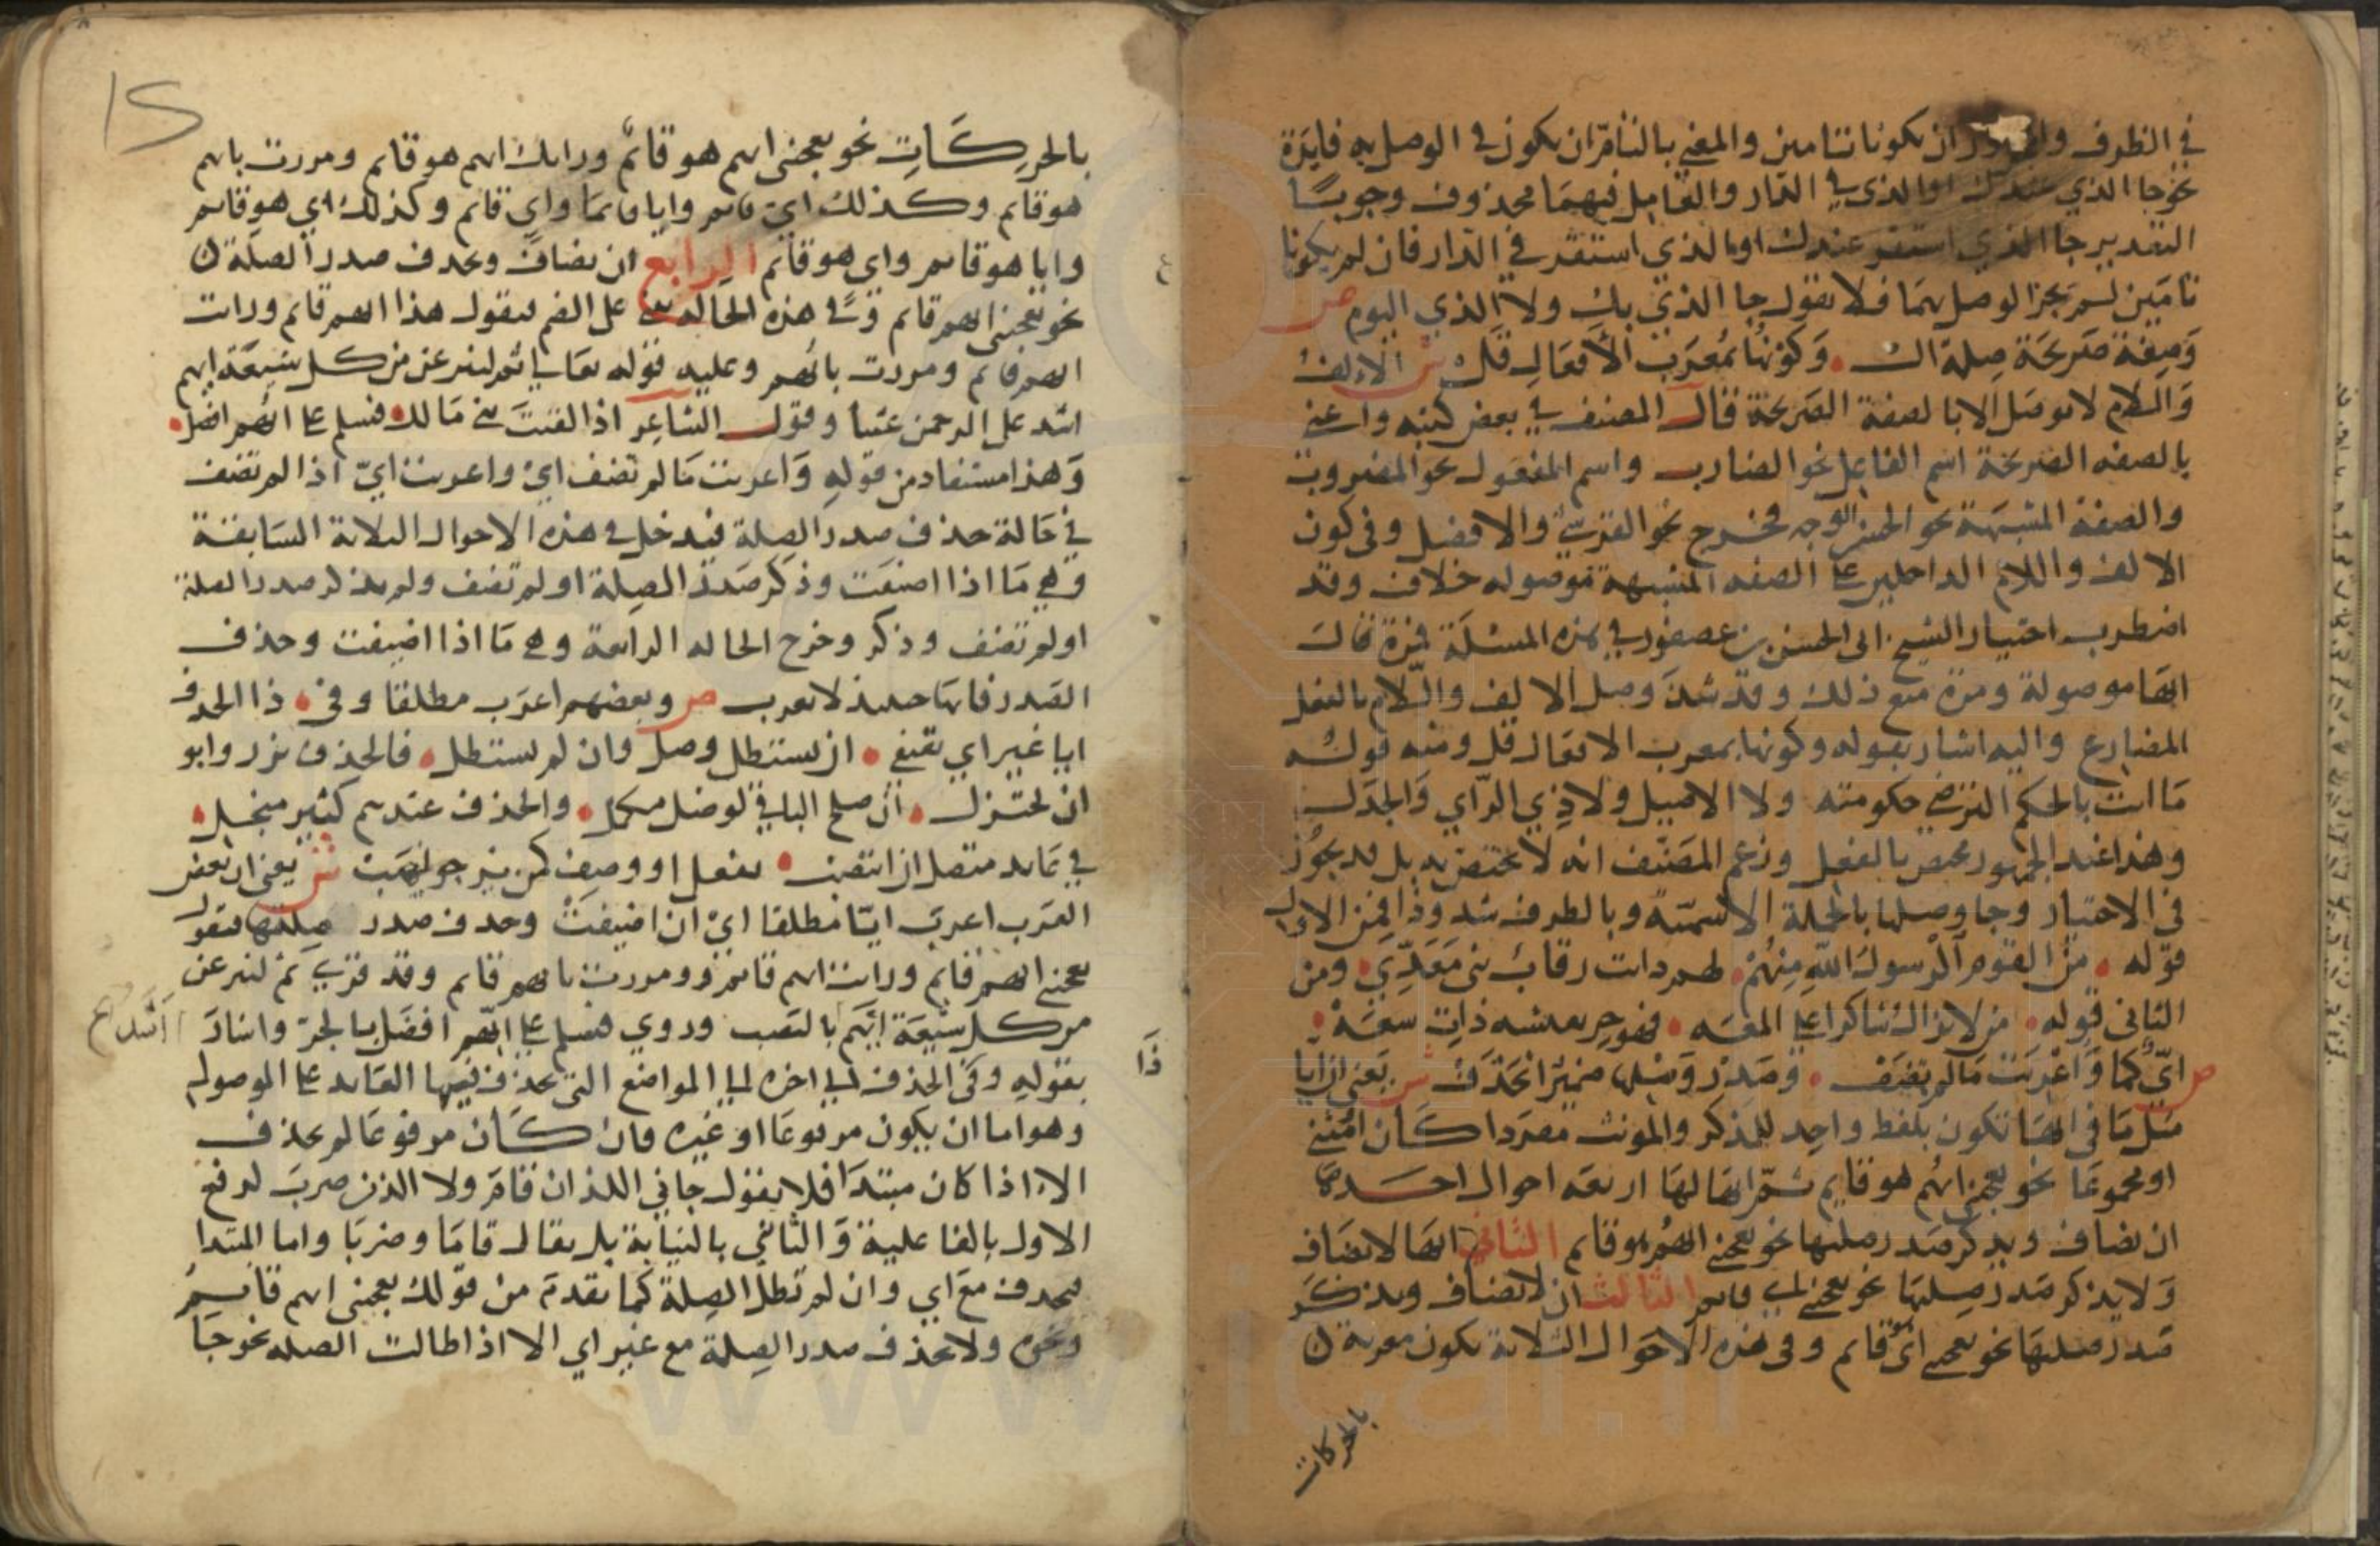 في الظرف والمجرور ان يكونا تامين والمعني بالتامّ ان يكون في الوصل به فايدة
نحو جا الذي عندك او الذي في الدار والعامل فيهما محذوف وجوبًا
التقدير جا الذي استقر عندك او الذي استقر في الدار فان لم يكونا
تامين لم يجز الوصل بهما فلا تقول جا الذي بك ولا الذي اليوم ص
وَصِفة صَريحَة صِلة ال • وَكونُها بمُعرَب الأفعَالِ قَل ش الالف
وَاللام لا توصَل الا بالصفة الصَريحة قال المصنف في بعض كتبه واعني
بالصفه الصَريحة اسم الفاعِل نحو الضارب واسم المفعول نحو المضروب
والصفة المشبهة نحو الحسن الوجه فخرج نحو القرشيّ والافضل وفي كون
الالف واللام الداخلين على الصفه المشبهة موصوله خلاف وقد
اضطرب اختيار الشيخ ابي الحسن بن عصفور في هذه المسئلة فمرة قال
انها موصولة ومرة منع ذلك وقد شذ وصل الالف واللام بالفعل
المضارع واليه اشار بقوله وكونها بمعرب الافعال قل ومنه قولُه
مَا انت بالحكم الترضي حكومته ولا الاصيل ولا ذِي الرّاي وَالجدَلِ
وهذا عند الجمهور مختص بالشعر وزعم المصَنّف انه لا يختص به بل قد يجُوز
في الاختيار وجا وصلها بالجملة الاسميّة وبالظرف شذوذا فمن الاول
قوله • مِنَ القوم الرسولُ اللهِ مِنهُمْ • لهم دانت رقاب بني مَعَدِّي • ومن
الثاني قوله • من لا يزال شاكرا على المعه • فهو حرٍ بعيشه ذاتِ سعَهْ •
ص ايّ كما وَاعْرِبَت مَا لم تضَفْ • وصَدْرُ وَصْلِها ضميرٌ انحَذَفْ ش يَعني ان ايا
مثل مَا في انها تكون بلفظ واحِد للمذكر والمونث مفردا كان او مثنى
او مجموعَا نحو يعجبني ايُهم هو قايم ثم انها لها اربعة احوال احدها
ان تضاف ويذكر صَدر صلتها نحو يعجبني ايهُم هو قايم الثاني انها لا تضاف
وَلا يذكر صَدر صِلتها نحو يعجبني اي قايم الثالث ان لا تضاف ويذكر
صَدر صلتها نحو يعجبني ايٌ هو قايم وفي هذه الاحوال الثلاثة تكون معربة
بالحركات
بالحركَاتِ نحو يعجبني ايهم هو قائم ورايت ايهم هو قايم ومررت بايهم
هو قايم وكذلك اي قايم وايا قايما واي قايم وكذلك اي هو قايم
وايا هو قايم واي هو قايم الرابع ان تضاف ويحذف صدر الصلة
نحو يعجبني ايهم قايم وَفي هذه الحالة تبنى على الضم فتقول هذا ايهم قايم ورايت
ايهم قايم ومررت بايُهم وعليه قوله تعالى ثم لننزعن من كل شيعَة ايهم
اشد على الرحمن عتيا وقول الشاعر اذا لقيتَ بني مَالك • فسلم على ايُهم افضل •
وَهذا مستفاد من قولهِ وَاعربت مَا لم تضف ايْ واعربت ايّ اذا لم تضف
في حَالة حذف صدر الصِلة فيدخل في هذه الاحوال الثلاثة السَابقة
وهي مَا اذا اضيفَت وذكر صَدرُ الصِلة او لم تضف ولم يذكر صدر الصلة
او لم تضف وذكر وخرج الحالة الرابعة وهي مَا اذا اضيفت وحذف
الصَدر فانها حينئذ لا تعرب ص وبعضهم اعرَب مطلقا وفي • ذا الحذف
ايا غير اي يقتفي • ان يستطل وصل وان لم يستطل • فالحذف نزر وابو
ان يختزل • ان صلح الباقي لوصل مكمل • والحذف عندهم كثير منجلي •
في عَايد متصل ان انتصب • بفعل او وصف كمن نرجو يهَب ش يعني ان بعض
العَرب اعربَ ايّا مطلقا اي وان اضيفَتْ وحذف صدر صلتها فتقول
يعجبني ايهم قايم ورايت ايهم قايم ومررت بايهم قايم وقد قري ثم لننزعن
من كل شيعَة ايَّهم بالنصب وروي فسلم على ايهم افضَل بالجر واشارَ اَشَد صح
بقولهِ وَفي ذَا الحذف الى اخره الى المواضع التي يحذف فيها العَايد على الموصول
وهو اما ان يكون مرفوعَا او غيره فان كان مرفوعَا لم يحذف
الا اذا كان مبتدَا فلا يقول جاني اللذان قامَ ولا اللذان ضربَ لرفع
الاول بالفاعلية وَالثاني بالنيابة بل يقال قامَا وضربَا واما المبتدا
فيحذف مَع اي وان لم تطل الصِلة كما تقدمَ من قولك يعجبني ايهم قايم
ونحوه ولا يحذف صدر الصِلة مع غير اي الا اذا طالت الصله نحو جَا
www.ical.ir